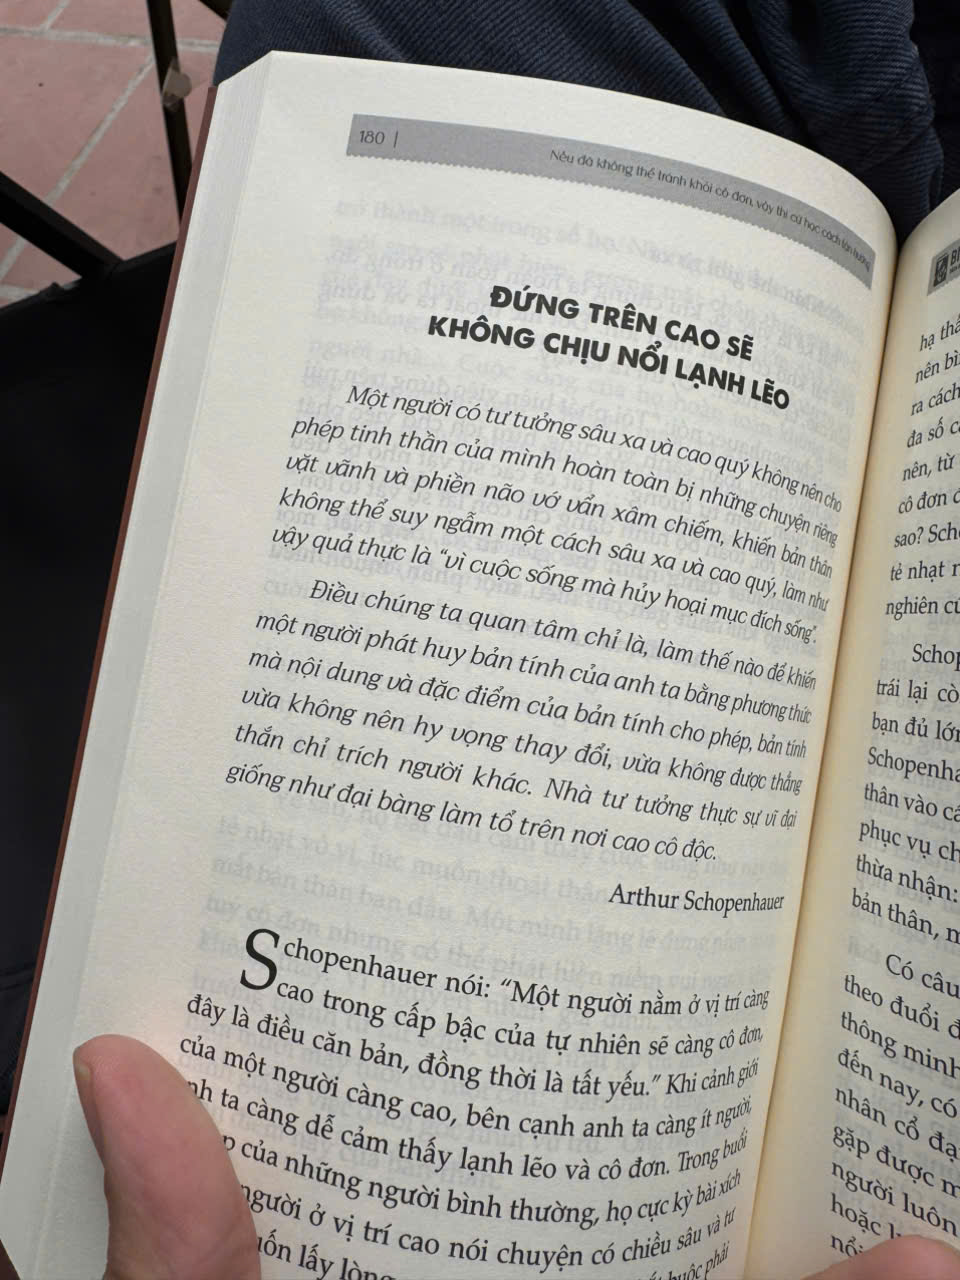 180 |
Nếu đã không thể tránh khỏi cô đơn, vậy thì cứ học cách tận hưởng
ĐỨNG TRÊN CAO SẼ
KHÔNG CHỊU NỔI LẠNH LẼO
Một người có tư tưởng sâu xa và cao quý không nên cho
phép tinh thần của mình hoàn toàn bị những chuyện riêng
vặt vãnh và phiền não vớ vẩn xâm chiếm, khiến bản thân
không thể suy ngẫm một cách sâu xa và cao quý, làm như
vậy quả thực là “vì cuộc sống mà hủy hoại mục đích sống”.
Điều chúng ta quan tâm chỉ là, làm thế nào để khiến
một người phát huy bản tính của anh ta bằng phương thức
mà nội dung và đặc điểm của bản tính cho phép, bản tính
vừa không nên hy vọng thay đổi, vừa không được thẳng
thắn chỉ trích người khác. Nhà tư tưởng thực sự vĩ đại
giống như đại bàng làm tổ trên nơi cao cô độc.
Arthur Schopenhauer
Schopenhauer nói: “Một người nằm ở vị trí càng
cao trong cấp bậc của tự nhiên sẽ càng cô đơn,
đây là điều căn bản, đồng thời là tất yếu.” Khi cảnh giới
của một người càng cao, bên cạnh anh ta càng ít người,
ta càng dễ cảm thấy lạnh lẽo và cô đơn. Trong buổi
của những người bình thường, họ cực kỳ bài xích
người ở vị trí cao nói chuyện có chiều sâu và tư
lấy lòng
buộc phải
hạ thấ
nên bì
ra cách
đa số c
nên, từ
cô đơn đ
sao? Sch
tẻ nhạt
nghiên cứ
Schop
trái lại cò
bạn đủ lớn
Schopenha
thân vào cá
phục vụ ch
thừa nhận:
bản thân, m
Có câu
theo đuổi đ
thông minh
đến nay, có
nhân cổ đạ
gặp được m
người luôn
hoặc
nổi